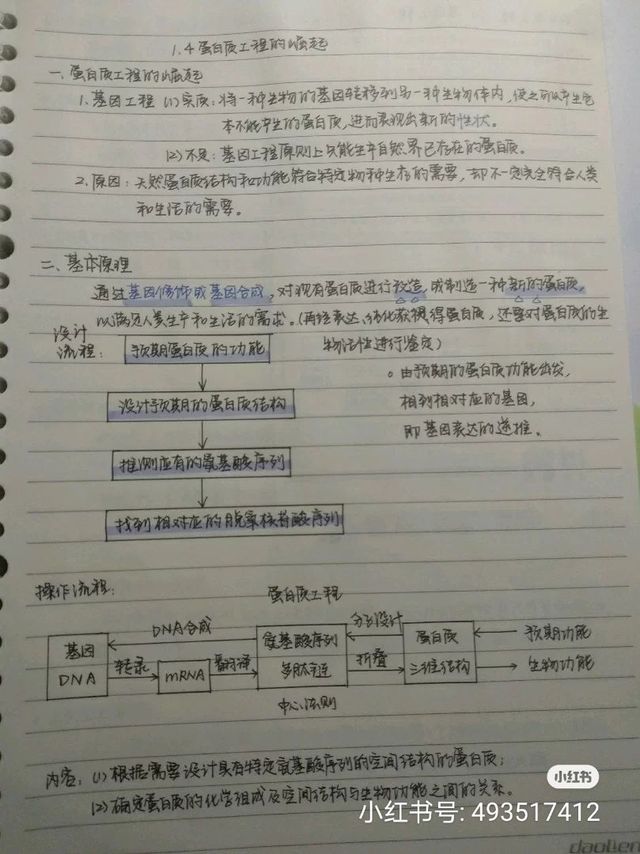 1.4 蛋白质工程的崛起
一、蛋白质工程的崛起
1.基因工程 (1)实质:将一种生物的基因转移到另一种生物体内,使之可以产生它
本不能产生的蛋白质,进而表现出新的性状。
(2)不足:基因工程原则上只能生产自然界已存在的蛋白质。
2.原因:天然蛋白质结构和功能符合特定物种生存的需要,却不一定完全符合人类
和生活的需要。
二、基本原理
通过基因修饰或基因合成,对现有蛋白质进行改造,或制造一种新的蛋白质,
以满足人类生产和生活的需求。(再经表达、纯化获得蛋白质,还要对蛋白质的生
物活性进行鉴定)
设计
流程:
预期蛋白质的功能
设计预期的蛋白质结构
推测应有的氨基酸序列
找到相对应的脱氧核苷酸序列
。由预期的蛋白质功能出发,
找到相对应的基因,
即基因表达的逆推。
操作流程:
蛋白质工程
DNA合成
分子设计
基因
DNA
转录
mRNA
翻译
氨基酸序列
多肽链
折叠
蛋白质
三维结构
预期功能
生物功能
中心法则
内容:(1)根据需要设计具有特定氨基酸序列的空间结构的蛋白质;
(2)确定蛋白质的化学组成及空间结构与生物功能之间的关系。
小红书
小红书号: 493517412